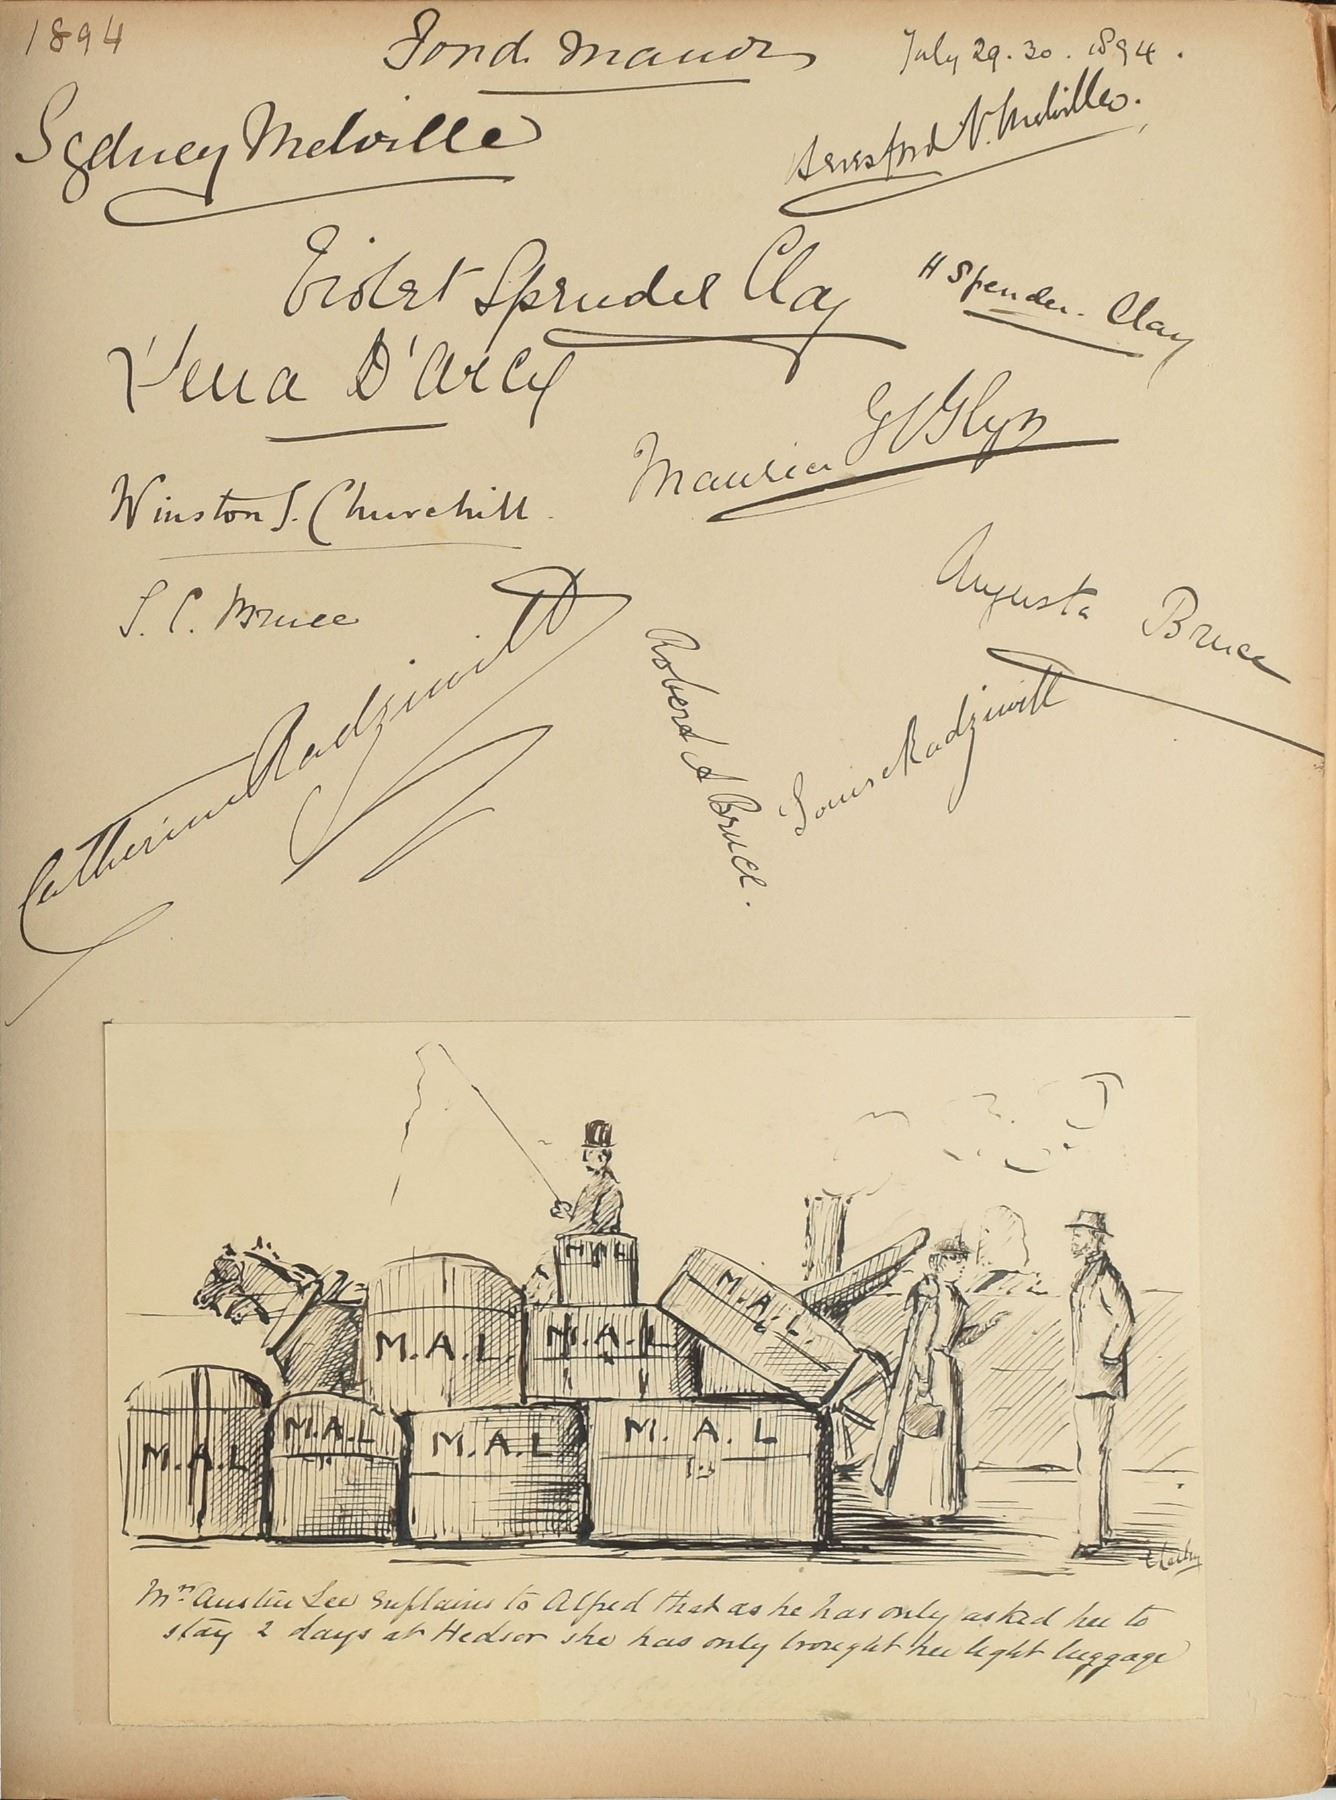 1894
Ford. Manor
July 29. 30. 1894.
Sydney Melville
Beresford V. Melville.
Violet Spender Clay
H Spender. Clay
Vena D'Arcy
Maurice G C Glyn
Winston S. Churchill.
Augusta Bruce
S. C. Bruce
Catherine Radziwill
Robert A Bruce.
Louise Radziwill
M.A.L
M.A.L.
M.A.L
M.A.L
M.A.L
M.A.L
M.A.L
M. A. L
Mrs Austin Lee explains to Alfred that as he has only asked her to
stay 2 days at Hedsor she has only brought her light luggage